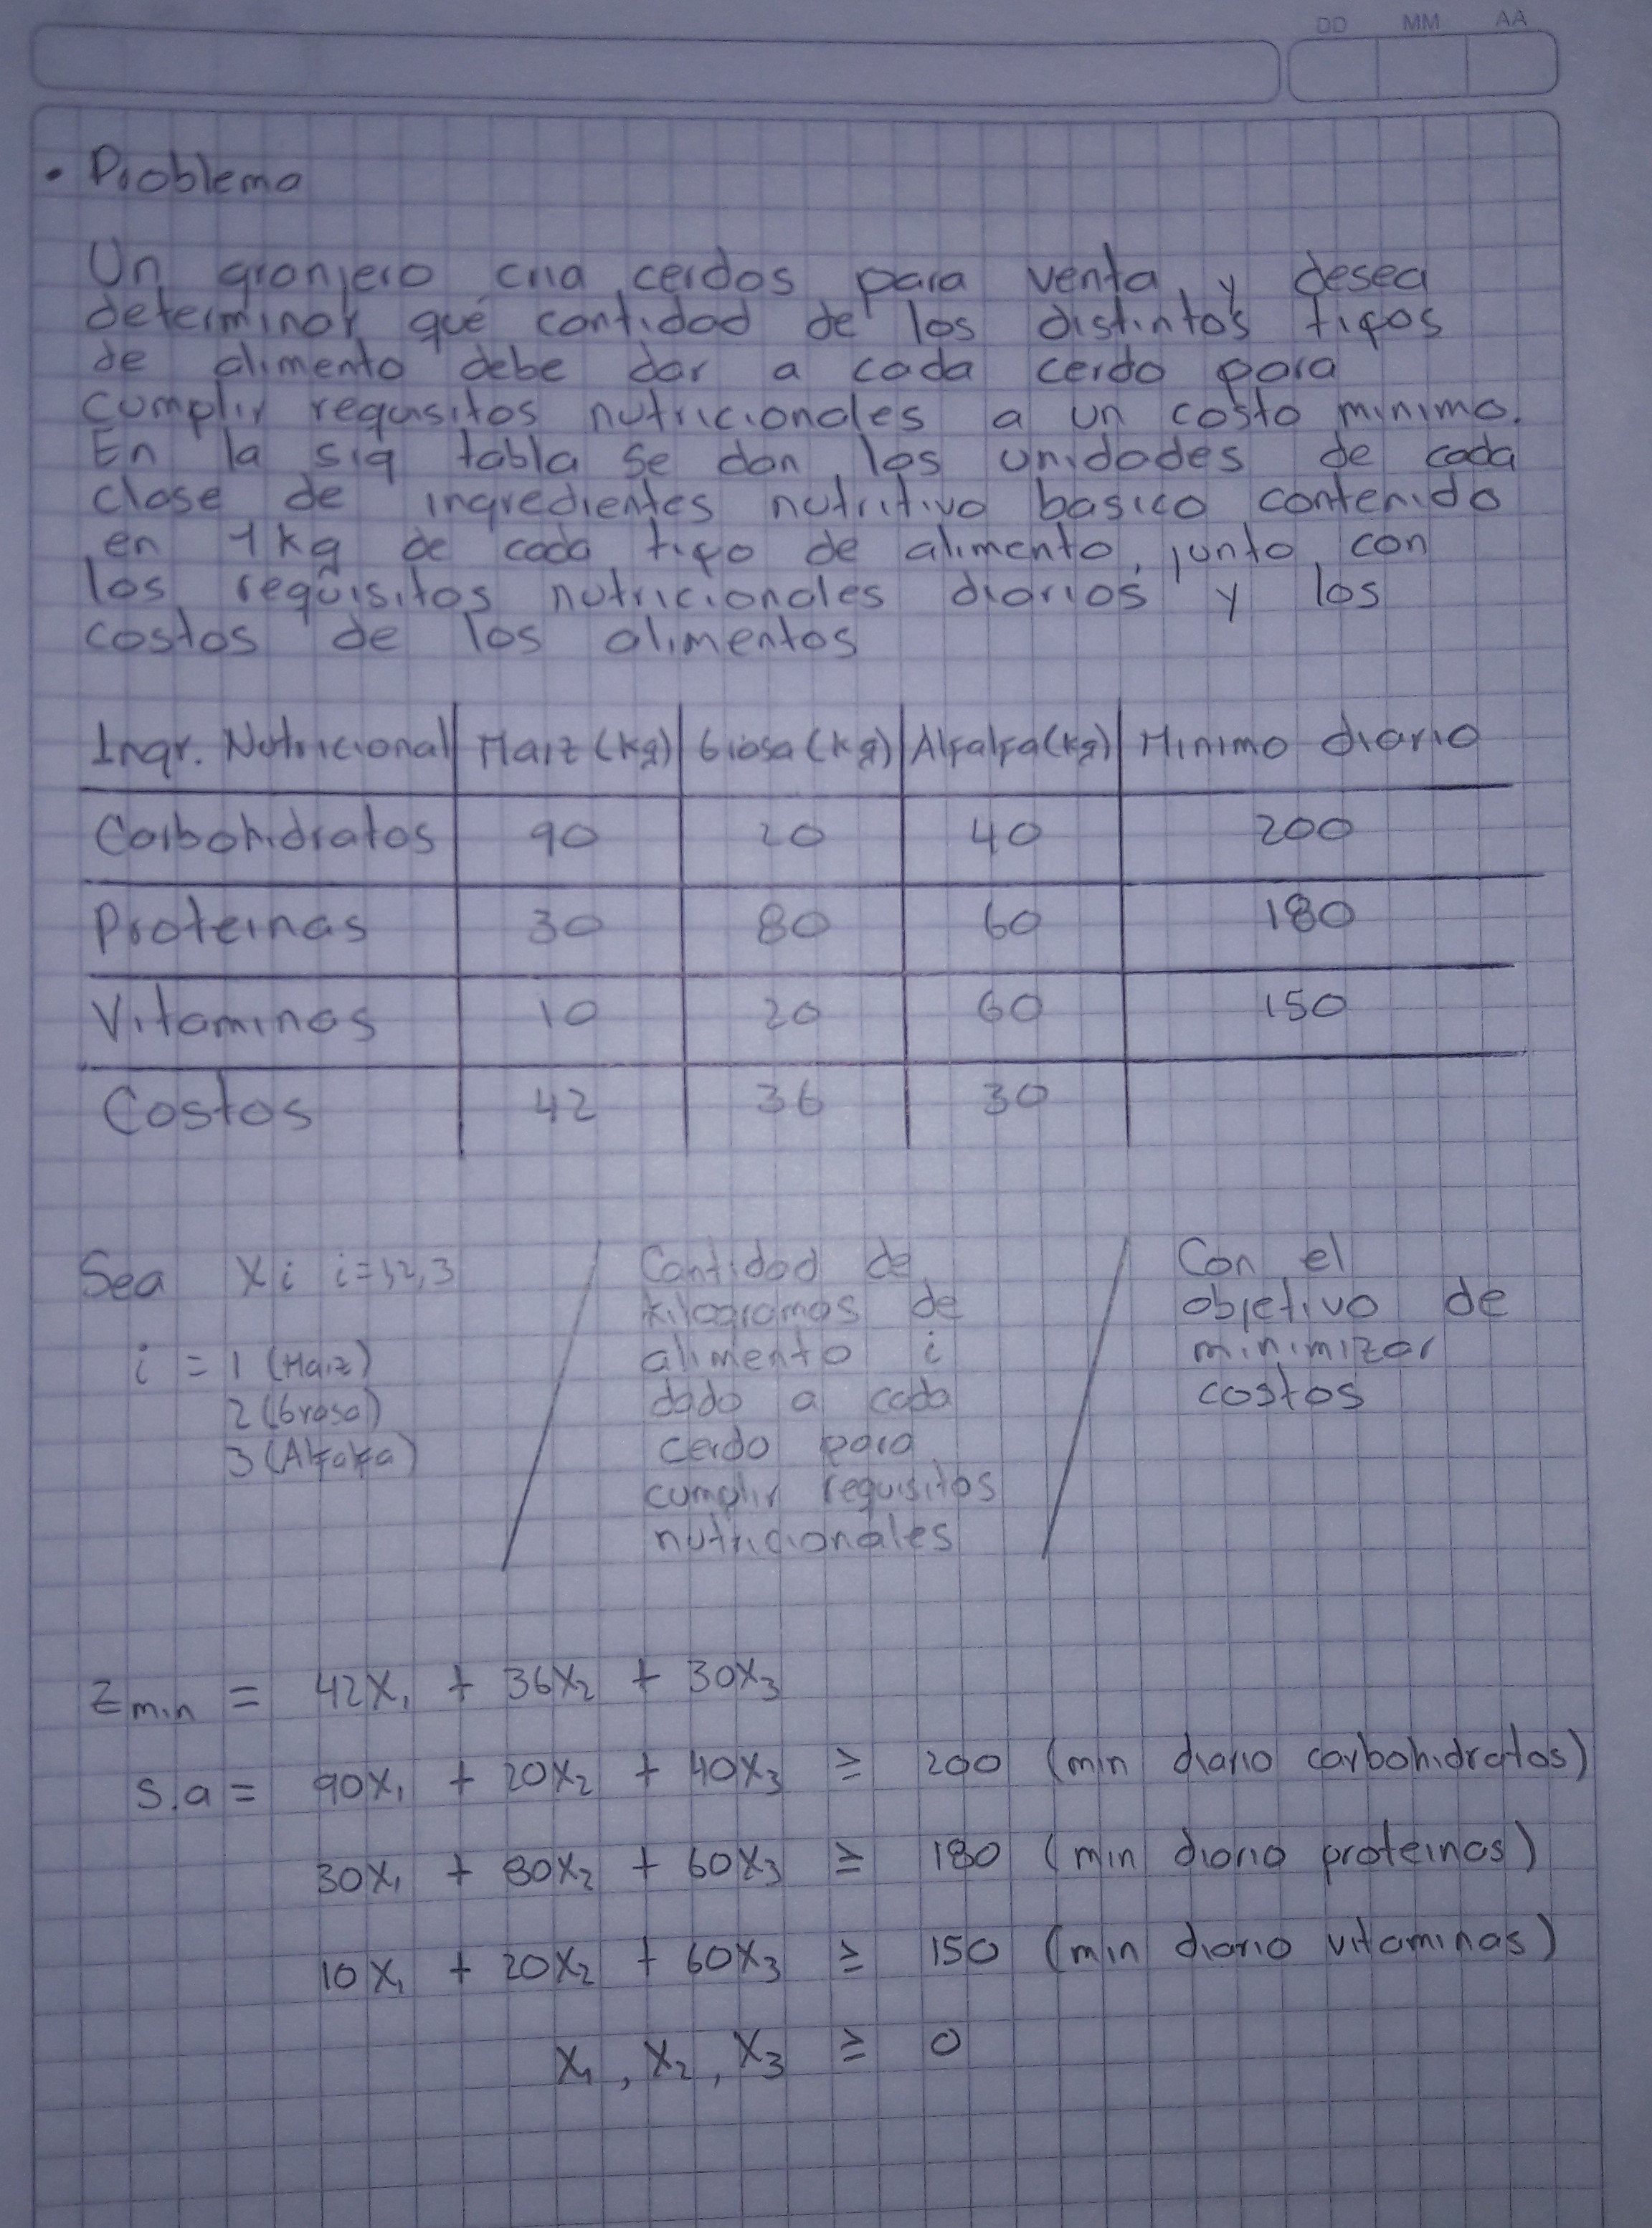 DD MM AA
• Problema
Un granjero cria cerdos para venta, y desea
determinar qué cantidad de los distintos tipos
de alimento debe dar a cada cerdo para
cumplir requisitos nutricionales a un costo minimo.
En la sig tabla se dan las unidades de cada
clase de ingredientes nutritivo basico contenido
en 1kg de cada tipo de alimento, junto con
los requisitos nutricionales diarios y los
costos de los alimentos
Ingr. Nutricional Maiz (kg) Grasa (kg) Alfalfa (kg) Minimo diario
Carbohidratos 90 20 40 200
Proteinas 30 80 60 180
Vitaminas 10 20 60 150
Costos 42 36 30
Sea Xi i=1,2,3
i = 1 (Maiz)
2 (Grasa)
3 (Alfalfa)
Cantidad de
kilogramos de
alimento i
dado a cada
cerdo para
cumplir requisitos
nutricionales
Con el
objetivo de
minimizar
costos
Zmin = 42X₁ + 36X₂ + 30X₃
S.a = 90X₁ + 20X₂ + 40X₃ ≥ 200 (min diario carbohidratos)
30X₁ + 80X₂ + 60X₃ ≥ 180 (min diario proteinas)
10X₁ + 20X₂ + 60X₃ ≥ 150 (min diario vitaminas)
X₁, X₂, X₃ ≥ 0